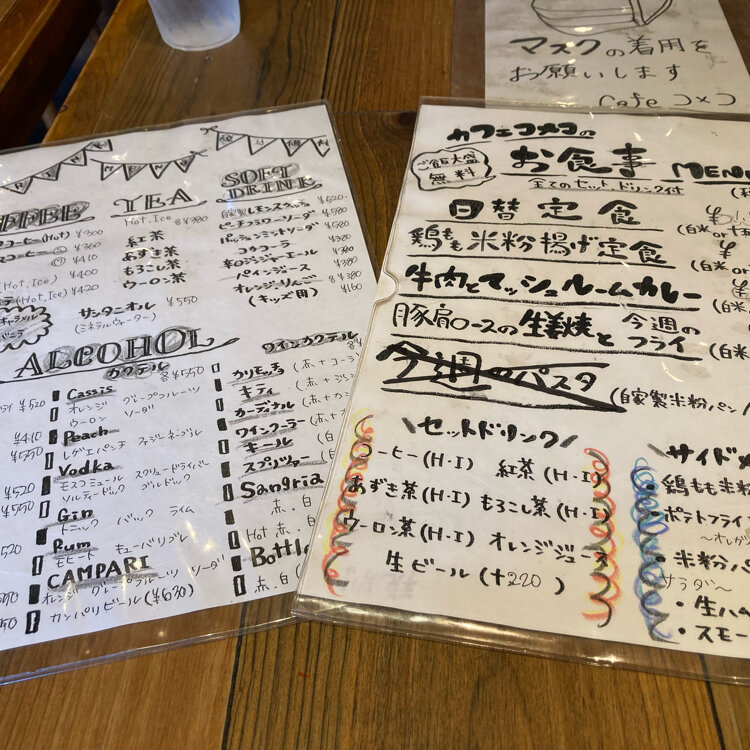 マスクの着用を
お願いします
Cafe コメコ
カフェコメコの
お食事 MENU
ご飯大盛
無料
全てのセットドリンク付
日替定食
鶏もも米粉揚げ定食
牛肉とマッシュルームカレー
豚肩ロースの生姜焼と今週の
フライ
今週のパスタ
(自家製米粉パン
\セットドリンク/
コーヒー(H・I) 紅茶(H・I)
あずき茶(H・I) もろこし茶(H・I)
ウーロン茶(H・I) オレンジジュース
生ビール(+220)
サイドメ
鶏もも米粉
ポテトフライ
米粉パ
サラダ〜
・生ハ
・スモー
TEA
Hot.Ice 各¥380
紅茶
あずき茶
もろこし茶
ウーロン茶
サンタニオル ¥550
(ミネラルウォーター)
SOFT
DRINK
自家製レモンスカッシュ ¥520-
ピーチフラワーソーダ ¥580
パッションミントソーダ ¥580
コカコーラ ¥380
辛口ジンジャーエール ¥380
パインジュース ¥380
オレンジ・りんご 各¥380
(キッズ用) ¥160
コーヒー(Hot) ¥300
¥360
¥410
(Hot.Ice) ¥400
(Hot.Ice) ¥420
キャラメル
バニラ
ALCOHOL
カクテル 各¥550
Cassis
オレンジ グレープフルーツ
ウーロン ソーダ
Peach
レゲエパンチ ファジーネーブル
Vodka
モスコミュール スクリュードライバー
ソルティードッグ ブルドッグ
Gin
トニック バック ライム
Rum
モヒート キューバリブレ
CAMPARI
オレンジ グレープフルーツ ソーダ
カンパリビール(¥630)
ワインカクテル
カリモッチョ (赤+コーラ
キティ (赤+ジン
カーディナル (赤+カ
ワインクーラー (赤
キール (白
スプリッツァー (白
Sangria
赤.白
Hot 赤.白
Bottle
赤.白
¥520
¥410
¥550
¥520
¥550
¥520